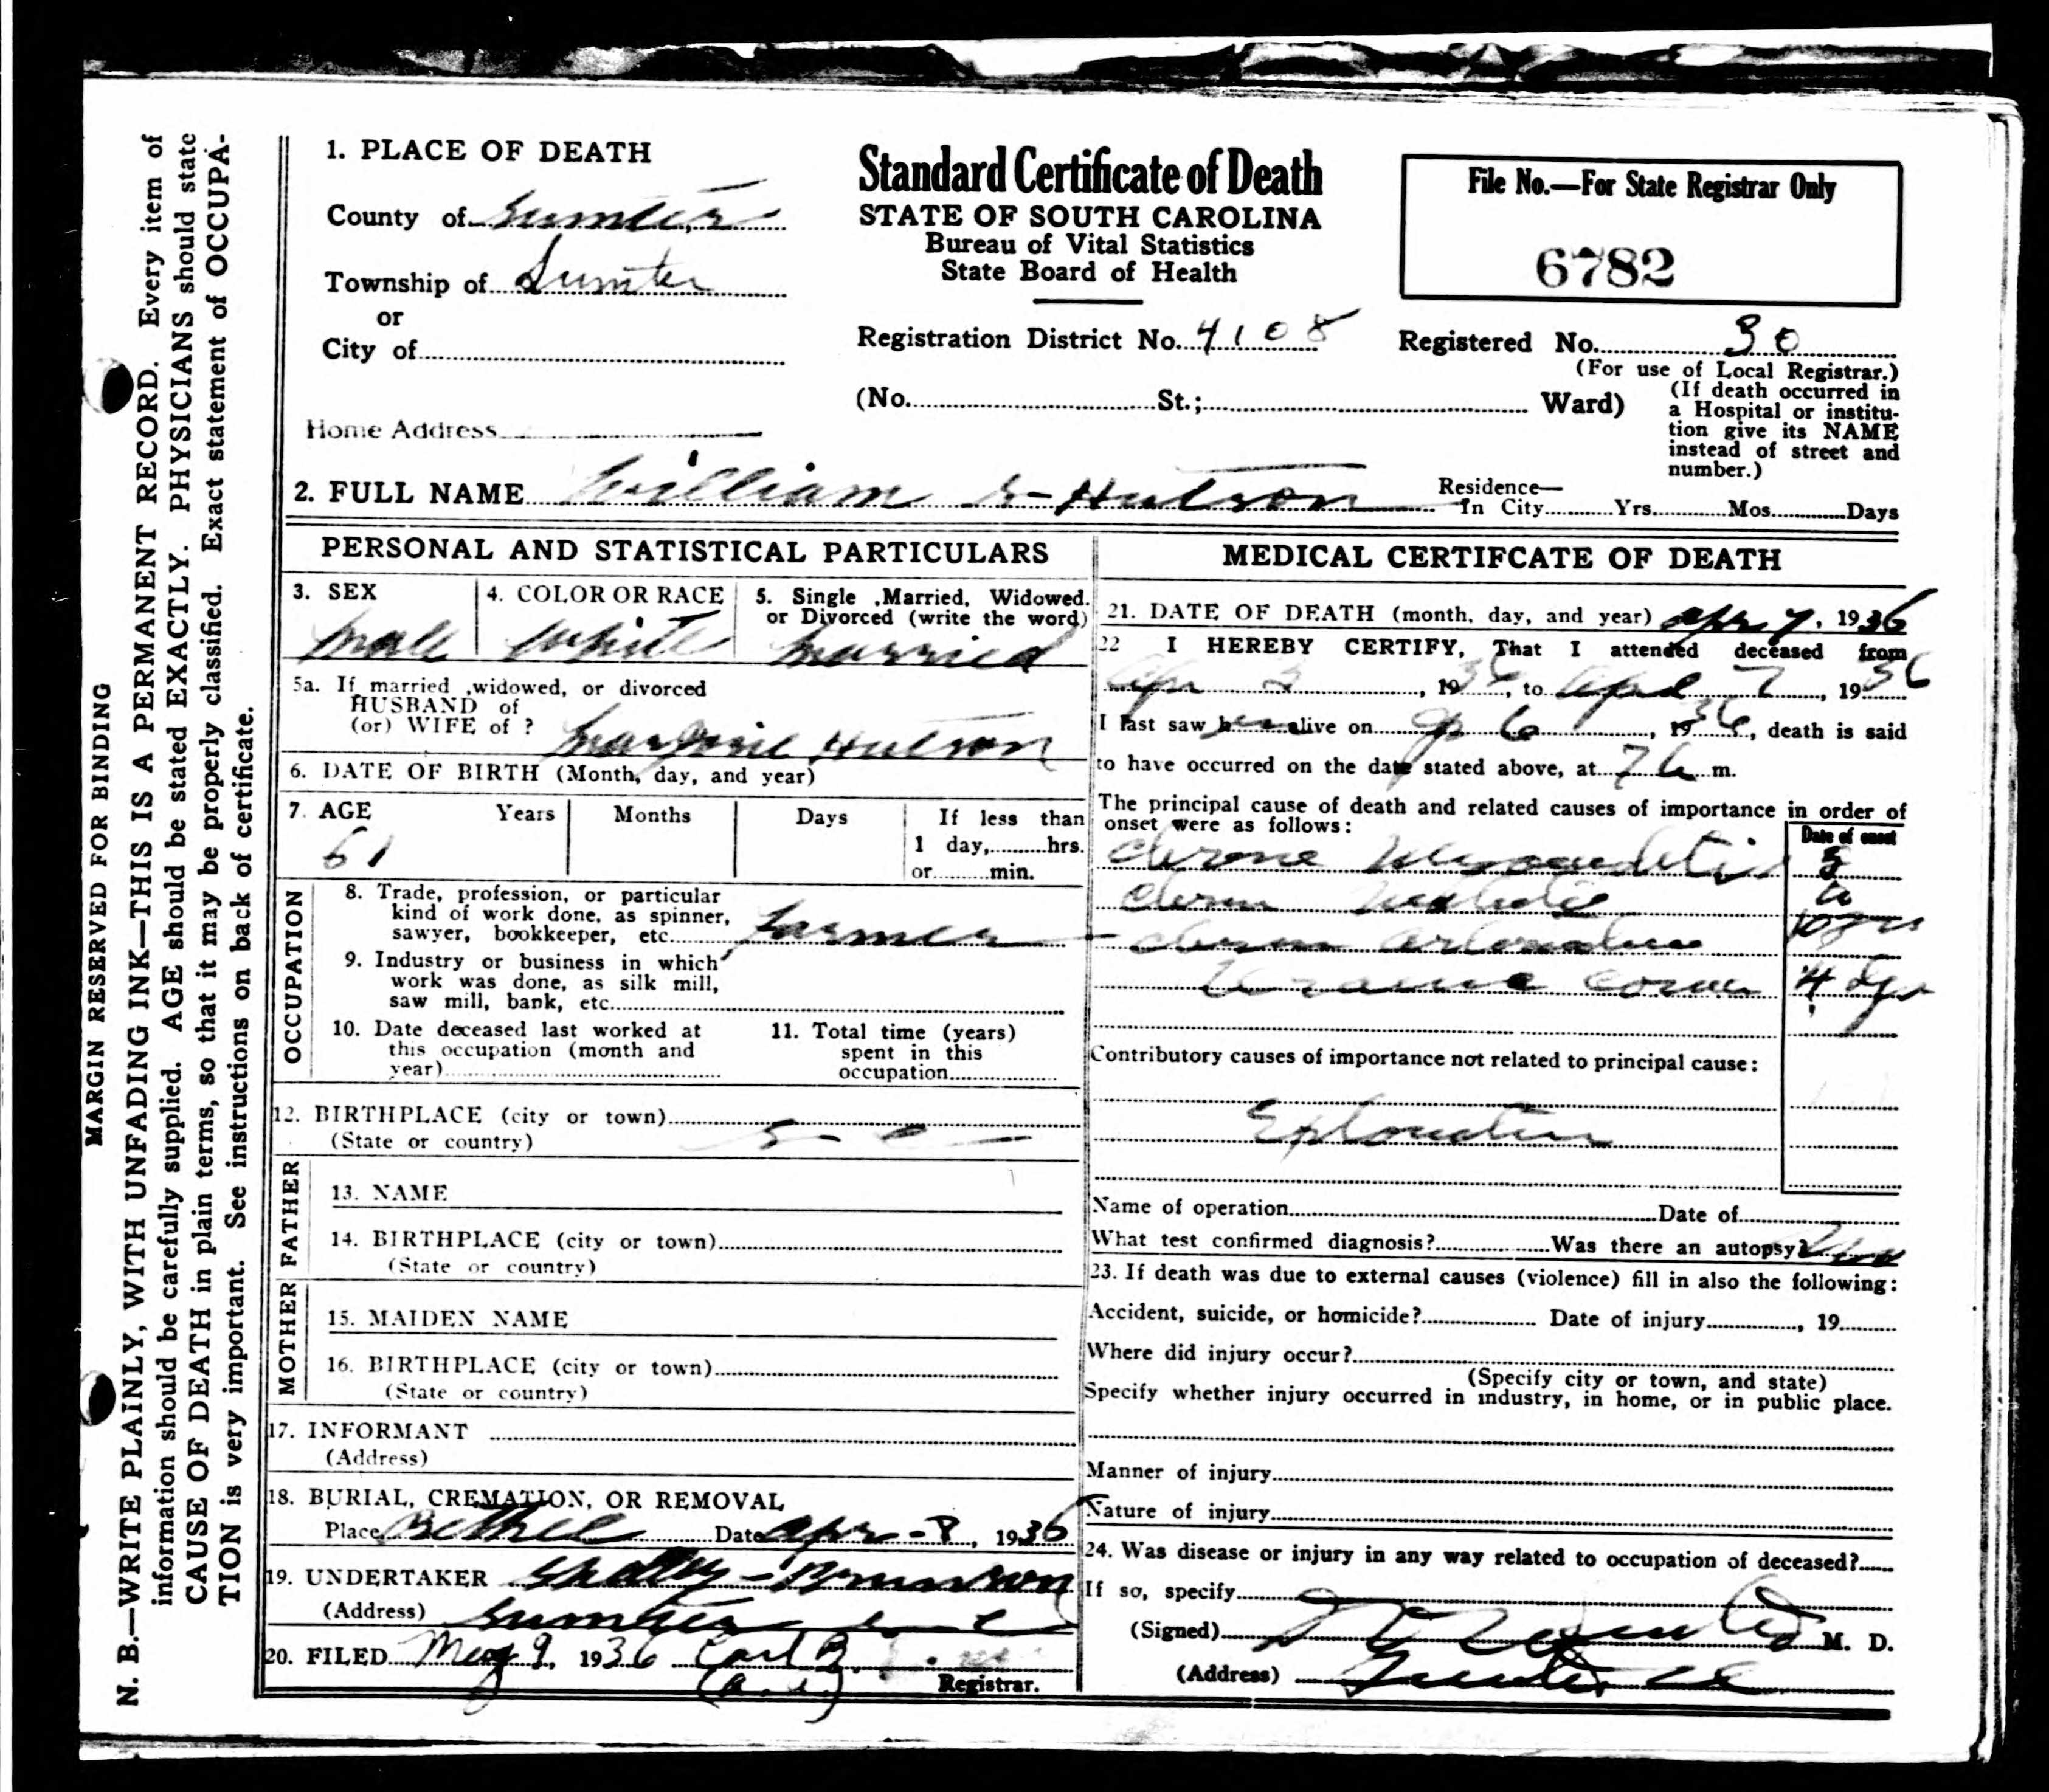 MARGIN RESERVED FOR BINDING
N. B.—WRITE PLAINLY, WITH UNFADING INK—THIS IS A PERMANENT RECORD. Every item of
information should be carefully supplied. AGE should be stated EXACTLY. PHYSICIANS should state
CAUSE OF DEATH in plain terms, so that it may be properly classified. Exact statement of OCCUPA-
TION is very important. See instructions on back of certificate.
1. PLACE OF DEATH
County of Sumter
Township of Sumter
or
City of
Home Address
Standard Certificate of Death
STATE OF SOUTH CAROLINA
Bureau of Vital Statistics
State Board of Health
File No.—For State Registrar Only
6782
Registration District No. 4108
Registered No. 30
(For use of Local Registrar.)
(No. St.; Ward)
(If death occurred in
a Hospital or institu-
tion give its NAME
instead of street and
number.)
2. FULL NAME William S- Hutson
Residence—
In City Yrs. Mos. Days
PERSONAL AND STATISTICAL PARTICULARS
3. SEX
Male
4. COLOR OR RACE
White
5. Single ,Married, Widowed.
or Divorced (write the word)
Married
5a. If married ,widowed, or divorced
HUSBAND of
(or) WIFE of ? Hutson
6. DATE OF BIRTH (Month, day, and year)
7. AGE Years Months Days If less than
1 day, hrs.
or min.
61
OCCUPATION
8. Trade, profession, or particular
kind of work done, as spinner,
sawyer, bookkeeper, etc. Farmer
9. Industry or business in which
work was done, as silk mill,
saw mill, bank, etc.
10. Date deceased last worked at
this occupation (month and
year)
11. Total time (years)
spent in this
occupation
12. BIRTHPLACE (city or town)
(State or country) S- C-
FATHER
13. NAME
14. BIRTHPLACE (city or town)
(State or country)
MOTHER
15. MAIDEN NAME
16. BIRTHPLACE (city or town)
(State or country)
17. INFORMANT
(Address)
18. BURIAL, CREMATION, OR REMOVAL
Place Bethel Date Apr-8, 1936
19. UNDERTAKER Brunson
(Address) Sumter S-C
20. FILED May 9, 1936 Carl B.
Registrar.
MEDICAL CERTIFCATE OF DEATH
21. DATE OF DEATH (month, day, and year) Apr 7, 1936
22 I HEREBY CERTIFY, That I attended deceased from
Apr 3, 1936, to April 7, 1936
I last saw him alive on Ap 6, 1936, death is said
to have occurred on the date stated above, at 7 a m.
The principal cause of death and related causes of importance in order of
onset were as follows:
Date of onset
Chronic Myocarditis 5
Chronic to
Chronic 10 yrs
Uraemic Coma 4 dys
Contributory causes of importance not related to principal cause:
Name of operation Date of
What test confirmed diagnosis? Was there an autopsy?
23. If death was due to external causes (violence) fill in also the following:
Accident, suicide, or homicide? Date of injury , 19
Where did injury occur?
(Specify city or town, and state)
Specify whether injury occurred in industry, in home, or in public place.
Manner of injury
Nature of injury
24. Was disease or injury in any way related to occupation of deceased?
If so, specify
(Signed) M. D.
(Address) Sumter, SC